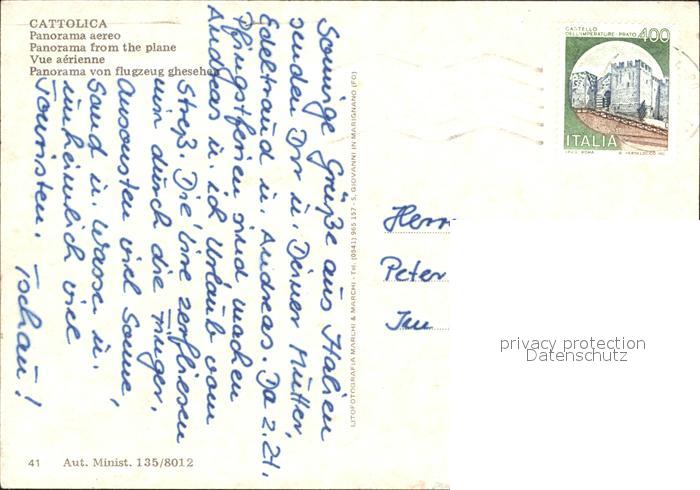 CATTOLICA
Panorama aereo
Panorama from the plane
Vue aérienne
Panorama von flugzeug ghesehen
Sonnige Grüße aus Italien
senden Dir u. Deiner Mutter,
Edeltraud u. Andreas. Da z. Zt.
Pfingstferien sind machen
Andreas u. ich Urlaub vom
Streß. Die Lire zerfliesen
mir durch die Finger.
Ansonsten viel Sonne,
Sand u. Wasser u.
unheimlich viel
Touristen. Tschau!
LITOFOTOGRAFIA MARCHI & MARCHI - Tel. (0541) 965 157 - S. GIOVANNI IN MARIGNANO (FO)
CASTELLO
DELL'IMPERATORE · PRATO 400
ITALIA
I.P.Z.S. ROMA
Herrn
Peter
Im
privacy protection
Datenschutz
41 Aut. Minist. 135/8012